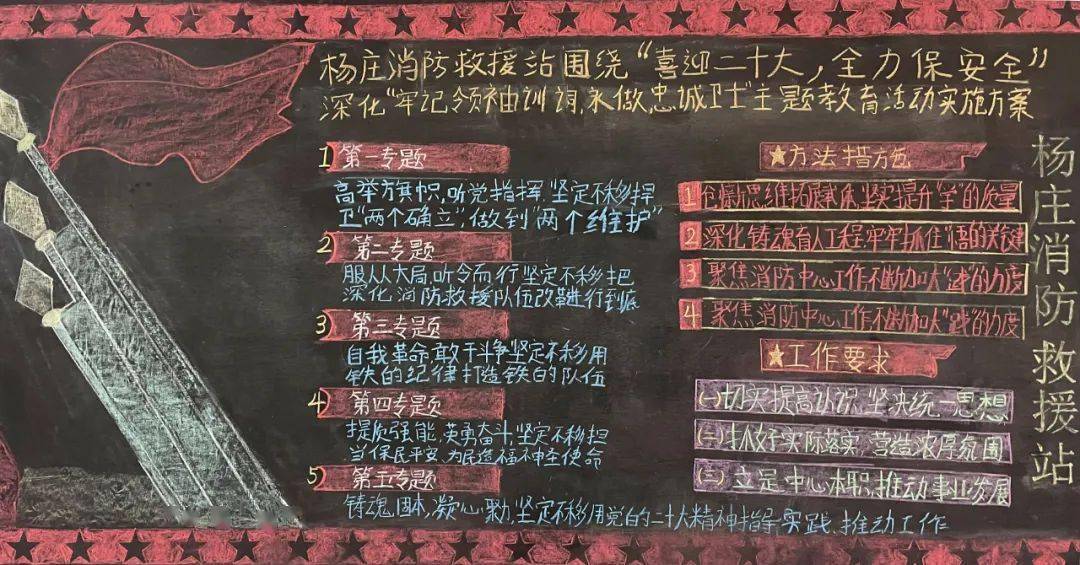 杨庄消防救援站围绕“喜迎二十大，全力保安全”
深化“牢记领袖训词，永做忠诚卫士”主题教育活动实施方案
1 第一专题
高举旗帜，听党指挥，坚定不移捍
卫“两个确立”，做到“两个维护”
2 第二专题
服从大局，听令而行坚定不移把
深化消防救援队伍改革进行到底
3 第三专题
自我革命，敢于斗争坚定不移用
铁的纪律打造铁的队伍
4 第四专题
提质强能，英勇奋斗，坚定不移担
当保民平安、为民造福神圣使命
5 第五专题
铸魂，固本，凝心，聚力，坚定不移用党的二十大精神指导实践、推动工作
★方法措施
1 思维拓展 坚实提升“学”的质量
2 深化铸魂育人工程，牢牢抓住“悟”的关键
3 聚焦消防中心工作不断加大“讲”的力度
4 聚焦消防中心工作不断加大“践”的力度
★工作要求
(一)切实提高认识，坚决统一思想
(二)抓好实际落实，营造浓厚氛围
(三)立足中心本职，推动事业发展
杨庄消防救援站